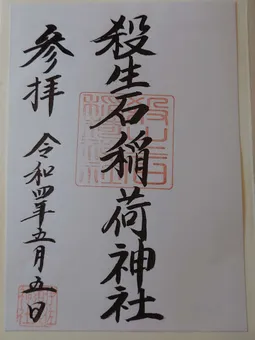 殺生石稲荷神社
参拝
令和四年五月五日